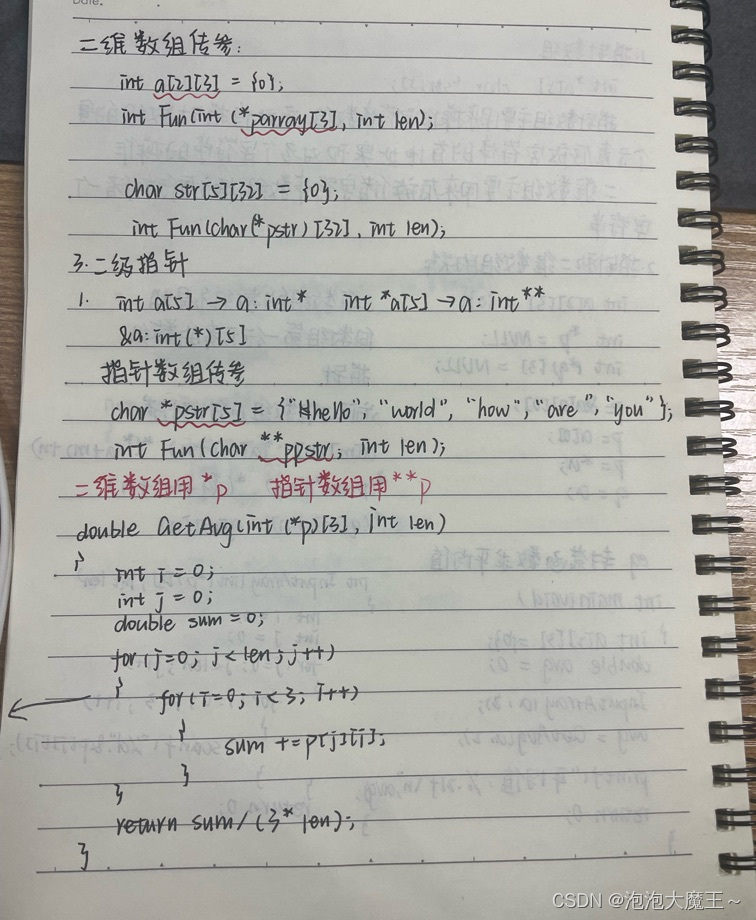 Date.
二维数组传参:
int a[2][3] = {0};
int Fun(int (*parray[3], int len);
char str[5][32] = {0};
int Fun(char(*pstr)[32], int len);
3.二级指针
1. int a[5] → a: int* int *a[5] → a: int**
&a: int(*)[5]
指针数组传参
char *pstr[5] = {"Hello", "world", "how", "are", "you"};
int Fun(char **ppstr, int len);
二维数组用*p 指针数组用**p
double GetAvg(int (*p)[3], int len)
{
int i = 0;
int j = 0;
double sum = 0;
for(j=0; j<len; j++)
{ for(i=0; i<3, i++)
{ sum += p[j][i];
}
}
return sum/(3*len);
}
CSDN @泡泡大魔王~